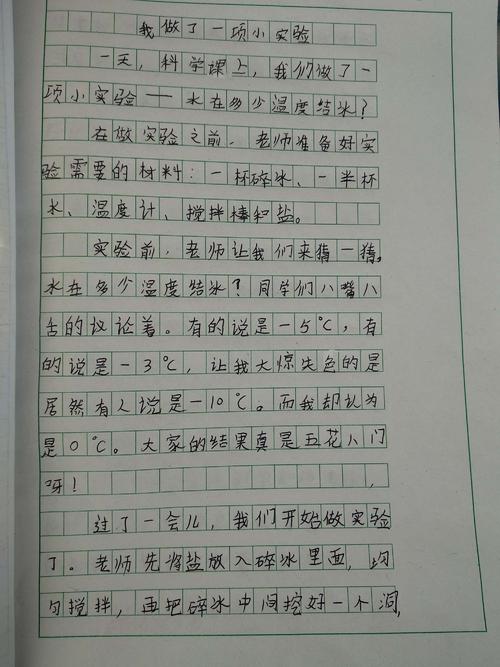 我做了一项小实验
一天，科学课上，我们做了一
项小实验——水在多少温度结冰？
在做实验之前，老师准备好实
验需要的材料：一杯碎冰、一半杯
水、温度计、搅拌棒和盐。
实验前，老师让我们来猜一猜，
水在多少温度结冰？同学们八嘴八
舌的议论着。有的说是－5℃，有
的说是－3℃，让我大惊失色的是
居然有人说是－10℃。而我却认为
是0℃。大家的结果真是五花八门
呀！
过了一会儿，我们开始做实验
了。老师先将盐放入碎冰里面，均
匀搅拌，再把碎冰中间挖好一个洞，